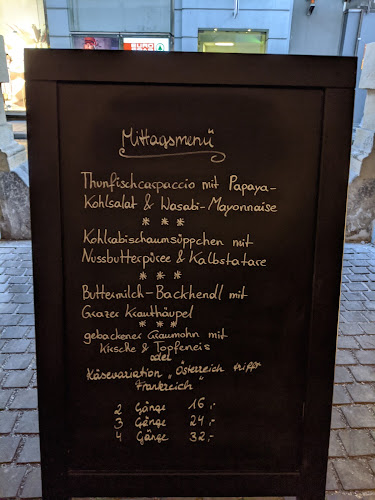 Mittagsmenü
Thunfischcarpaccio mit Papaya-
Kohlsalat & Wasabi-Mayonnaise
* * *
Kohlrabischaumsüppchen mit
Nussbutterpüree & Kalbstatare
* * *
Buttermilch-Backhendl mit
Grazer Krauthäupel
* * *
gebackener Graumohn mit
Kirsche & Topfeneis
oder
Käsevariation "Österreich trifft
Frankreich"
2 Gänge 16,-
3 Gänge 24,-
4 Gänge 32,-